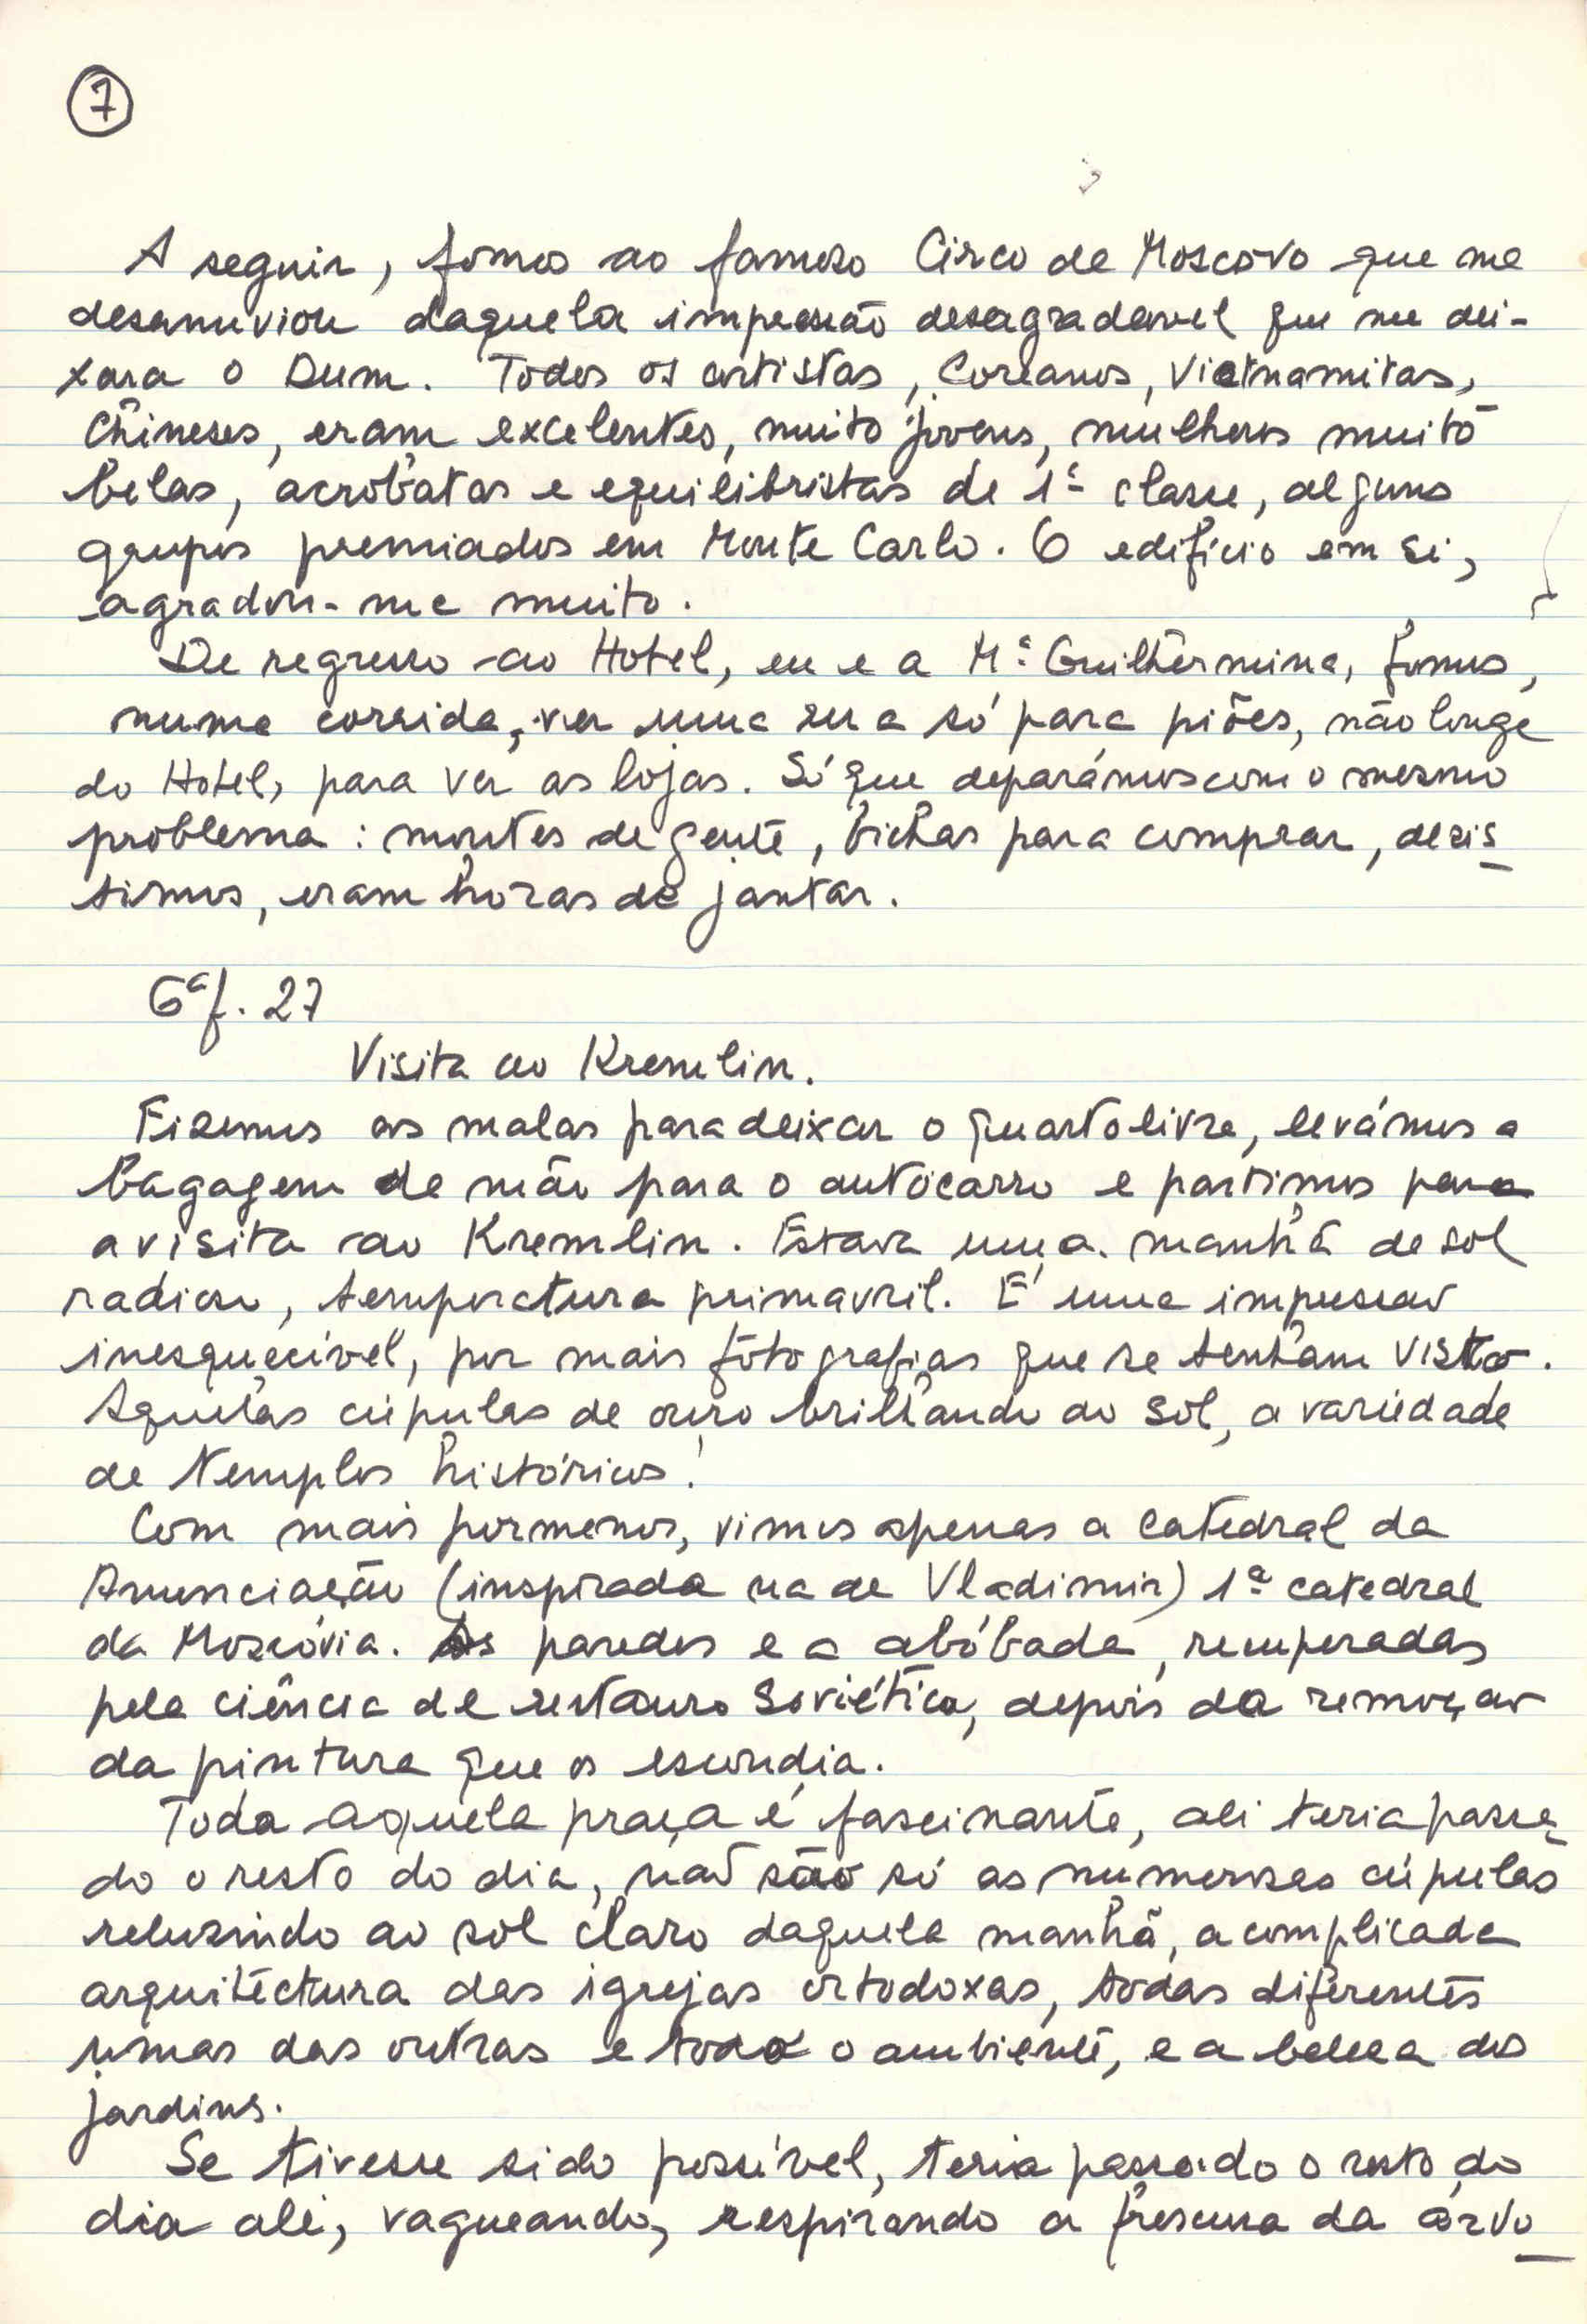 7
A seguir, fomos ao famoso Circo de Moscovo que me
desanuviou daquela impressão desagradavel que me dei-
xara o Dum. Todos os artistas, Coreanos, Vietnamitas,
Chineses, eram excelentes, muito jovens, mulheres muito
belas, acrobatas e equilibristas de 1ª classe, alguns
grupos premiados em Monte Carlo. O edifício em si,
agradou-me muito.
De regresso ao Hotel, eu e a Mª Guilhermina, fomos,
numa corrida, ver uma rua só para piões, não longe
do Hotel, para ver as lojas. Só que deparámos com o mesmo
problema: montes de gente, bichas para comprar, desis_
timos, eram horas de jantar.
6ª f. 27
Visita ao Kremlin.
Fizemos as malas para deixar o quarto livre, levámos a
bagagem de mão para o autocarro e partimos para
a visita ao Kremlin. Estava uma manhã de sol
radioso, temperatura primavril. É uma impressão
inesquecível, por mais fotografias que se tenham visto.
Aquelas cúpulas de ouro brilhando ao sol, a variedade
de templos históricos!
Com mais pormenor, vimos apenas a catedral da
Anunciação (inspirada na de Vladimir) 1ª catedral
da Moscóvia. As paredes e a abóbada, recuperadas
pela ciência de restauro Soviética, depois da remoção
da pintura que os escondia.
Toda aquela praça é fascinante, ali teria passa_
do o resto do dia, não são só as numerosas cúpulas
reluzindo ao sol claro daquela manhã, a complicada
arquitectura das igrejas ortodoxas, todas diferentes
umas das outras e todo o ambiente, e a beleza dos
jardins.
Se tivesse sido possível, teria passado o resto do
dia ali, vagueando, respirando a frescura da arvo_